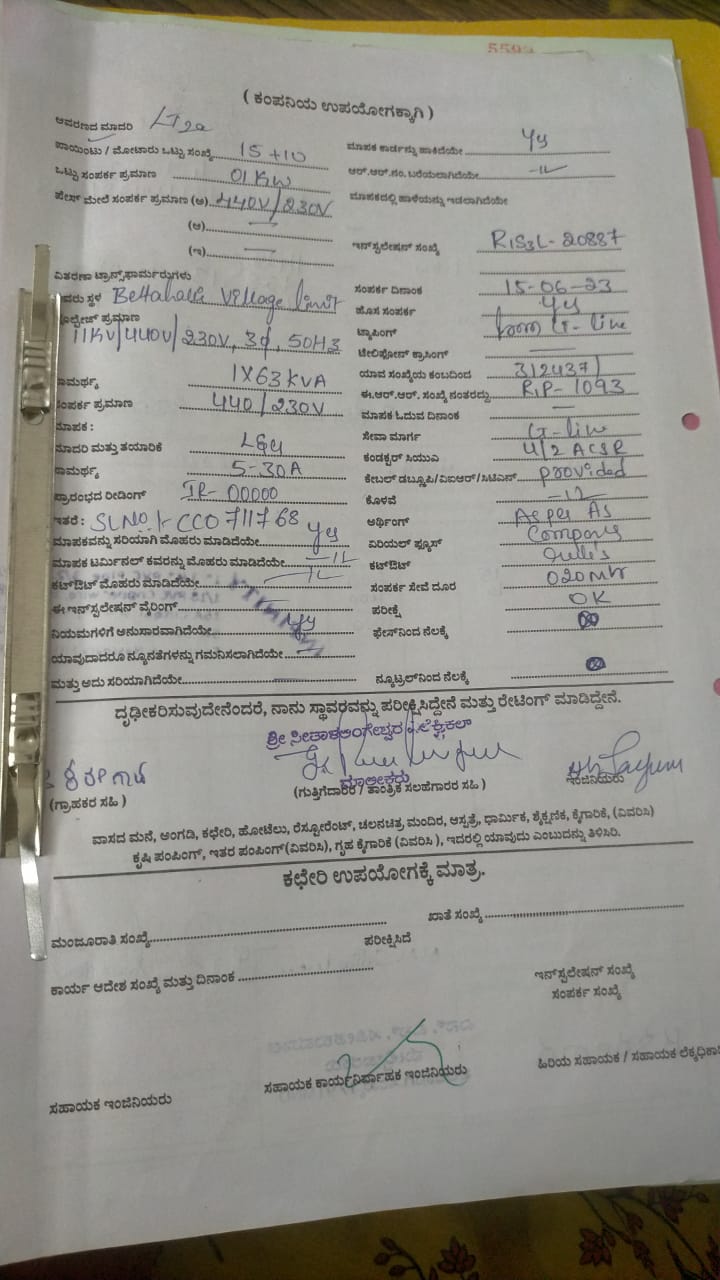 5592
( ಕಂಪನಿಯ ಉಪಯೋಗಕ್ಕಾಗಿ )
ಆವರಣದ ಮಾದರಿ LT2a
ಪಾಯಿಂಟು / ಮೋಟಾರು ಒಟ್ಟು ಸಂಖ್ಯೆ 15 + 10 ಮಾಪಕ ಕಾರ್ಡನ್ನು ಹಾಕಿದೆಯೇ Yes
ಒಟ್ಟು ಸಂಪರ್ಕ ಪ್ರಮಾಣ 01 KW ಆರ್.ಆರ್.ನಂ. ಬರೆಯಲಾಗಿದೆಯೇ -"-
ಫೇಸ್ ಮೇಲೆ ಸಂಪರ್ಕ ಪ್ರಮಾಣ (ಅ) 440V/230V ಮಾಪಕದಲ್ಲಿ ಹಾಳೆಯನ್ನು ಇಡಲಾಗಿದೆಯೇ
(ಆ) —
(ಇ) — ಇನ್‌ಸ್ಟಲೇಷನ್ ಸಂಖ್ಯೆ RIS3L-20887
ವಿತರಣಾ ಟ್ರಾನ್ಸ್‌ಫಾರ್ಮರುಗಳು
ಸ್ಥಳ Bettahalli Village limit ಸಂಪರ್ಕ ದಿನಾಂಕ 15-06-23
ಪ್ರಮಾಣ ಹೊಸ ಸಂಪರ್ಕ Yes
11KV/440V/230V, 3ϕ, 50HZ ಟ್ಯಾಪಿಂಗ್ from G-line
ಟೆಲಿಫೋನ್ ಕ್ರಾಸಿಂಗ್ —
ಸಾಮರ್ಥ್ಯ 1X63KVA ಯಾವ ಸಂಖ್ಯೆಯ ಕಂಬದಿಂದ 312437/
ಸಂಪರ್ಕ ಪ್ರಮಾಣ 440/230V ಈ.ಆರ್.ಆರ್. ಸಂಖ್ಯೆ ನಂತರದ್ದು RIP-1093
ಮಾಪಕ : ಮಾಪಕ ಓದುವ ದಿನಾಂಕ —
ಮಾದರಿ ಮತ್ತು ತಯಾರಿಕೆ L&G ಸೇವಾ ಮಾರ್ಗ G-line
ಸಾಮರ್ಥ್ಯ 5-30A ಕಂಡಕ್ಟರ್ ಸಿಯುಎ 4/2 ACSR
ಪ್ರಾರಂಭದ ರೀಡಿಂಗ್ IR-00000 ಕೇಬಲ್ ಡಬ್ಲೂಪಿ/ವಿಐಆರ್/ಸಿಟಿಎಸ್ provided
ಇತರೆ : SLNO:- CCO711768 ಕೊಳವೆ -"-
ಮಾಪಕವನ್ನು ಸರಿಯಾಗಿ ಮೊಹರು ಮಾಡಿದೆಯೇ Yes ಅರ್ಥಿಂಗ್ As per As
ಮಾಪಕ ಟರ್ಮಿನಲ್ ಕವರನ್ನು ಮೊಹರು ಮಾಡಿದೆಯೇ -"- ಏರಿಯಲ್ ಫ್ಯೂಸ್ Company
ಕಟ್‌ಔಟ್ ಮೊಹರು ಮಾಡಿದೆಯೇ -"- ಕಟ್‌ಔಟ್ rules
ಈ ಇನ್‌ಸ್ಟಲೇಷನ್ ವೈರಿಂಗ್ ಸಂಪರ್ಕ ಸೇವೆ ದೂರ 020 Mtr
ನಿಯಮಗಳಿಗೆ ಅನುಸಾರವಾಗಿದೆಯೇ Yes ಪರೀಕ್ಷೆ OK
ಯಾವುದಾದರೂ ನ್ಯೂನತೆಗಳನ್ನು ಗಮನಿಸಲಾಗಿದೆಯೇ — ಫೇಸ್‌ನಿಂದ ನೆಲಕ್ಕೆ
ಮತ್ತು ಅದು ಸರಿಯಾಗಿದೆಯೇ — ನ್ಯೂಟ್ರಲ್‌ನಿಂದ ನೆಲಕ್ಕೆ
ದೃಢೀಕರಿಸುವುದೇನೆಂದರೆ, ನಾನು ಸ್ಥಾವರವನ್ನು ಪರೀಕ್ಷಿಸಿದ್ದೇನೆ ಮತ್ತು ರೇಟಿಂಗ್ ಮಾಡಿದ್ದೇನೆ.
ಶ್ರೀ
ಮಾಲೀಕರು
(ಗ್ರಾಹಕರ ಸಹಿ ) (ಗುತ್ತಿಗೆದಾರರ / ತಾಂತ್ರಿಕ ಸಲಹೆಗಾರರ ಸಹಿ ) ಇಂಜಿನಿಯರು
ವಾಸದ ಮನೆ, ಅಂಗಡಿ, ಕಛೇರಿ, ಹೋಟೆಲು, ರೆಸ್ಟೋರೆಂಟ್, ಚಲನಚಿತ್ರ ಮಂದಿರ, ಆಸ್ಪತ್ರೆ, ಧಾರ್ಮಿಕ, ಶೈಕ್ಷಣಿಕ, ಕೈಗಾರಿಕೆ, (ವಿವರಿಸಿ)
ಕೃಷಿ ಪಂಪಿಂಗ್, ಇತರ ಪಂಪಿಂಗ್(ವಿವರಿಸಿ), ಗೃಹ ಕೈಗಾರಿಕೆ (ವಿವರಿಸಿ ), ಇದರಲ್ಲಿ ಯಾವುದು ಎಂಬುದನ್ನು ತಿಳಿಸಿರಿ.
ಕಛೇರಿ ಉಪಯೋಗಕ್ಕೆ ಮಾತ್ರ.
ಮಂಜೂರಾತಿ ಸಂಖ್ಯೆ ಖಾತೆ ಸಂಖ್ಯೆ
ಪರೀಕ್ಷಿಸಿದೆ
ಕಾರ್ಯ ಆದೇಶ ಸಂಖ್ಯೆ ಮತ್ತು ದಿನಾಂಕ
ಇನ್‌ಸ್ಟಲೇಷನ್ ಸಂಖ್ಯೆ
ಸಂಪರ್ಕ ಸಂಖ್ಯೆ
ಸಹಾಯಕ ಇಂಜಿನಿಯರು ಸಹಾಯಕ ಕಾರ್ಯನಿರ್ವಾಹಕ ಇಂಜಿನಿಯರು ಹಿರಿಯ ಸಹಾಯಕ / ಸಹಾಯಕ ಲೆಕ್ಕಾಧಿಕಾರಿ